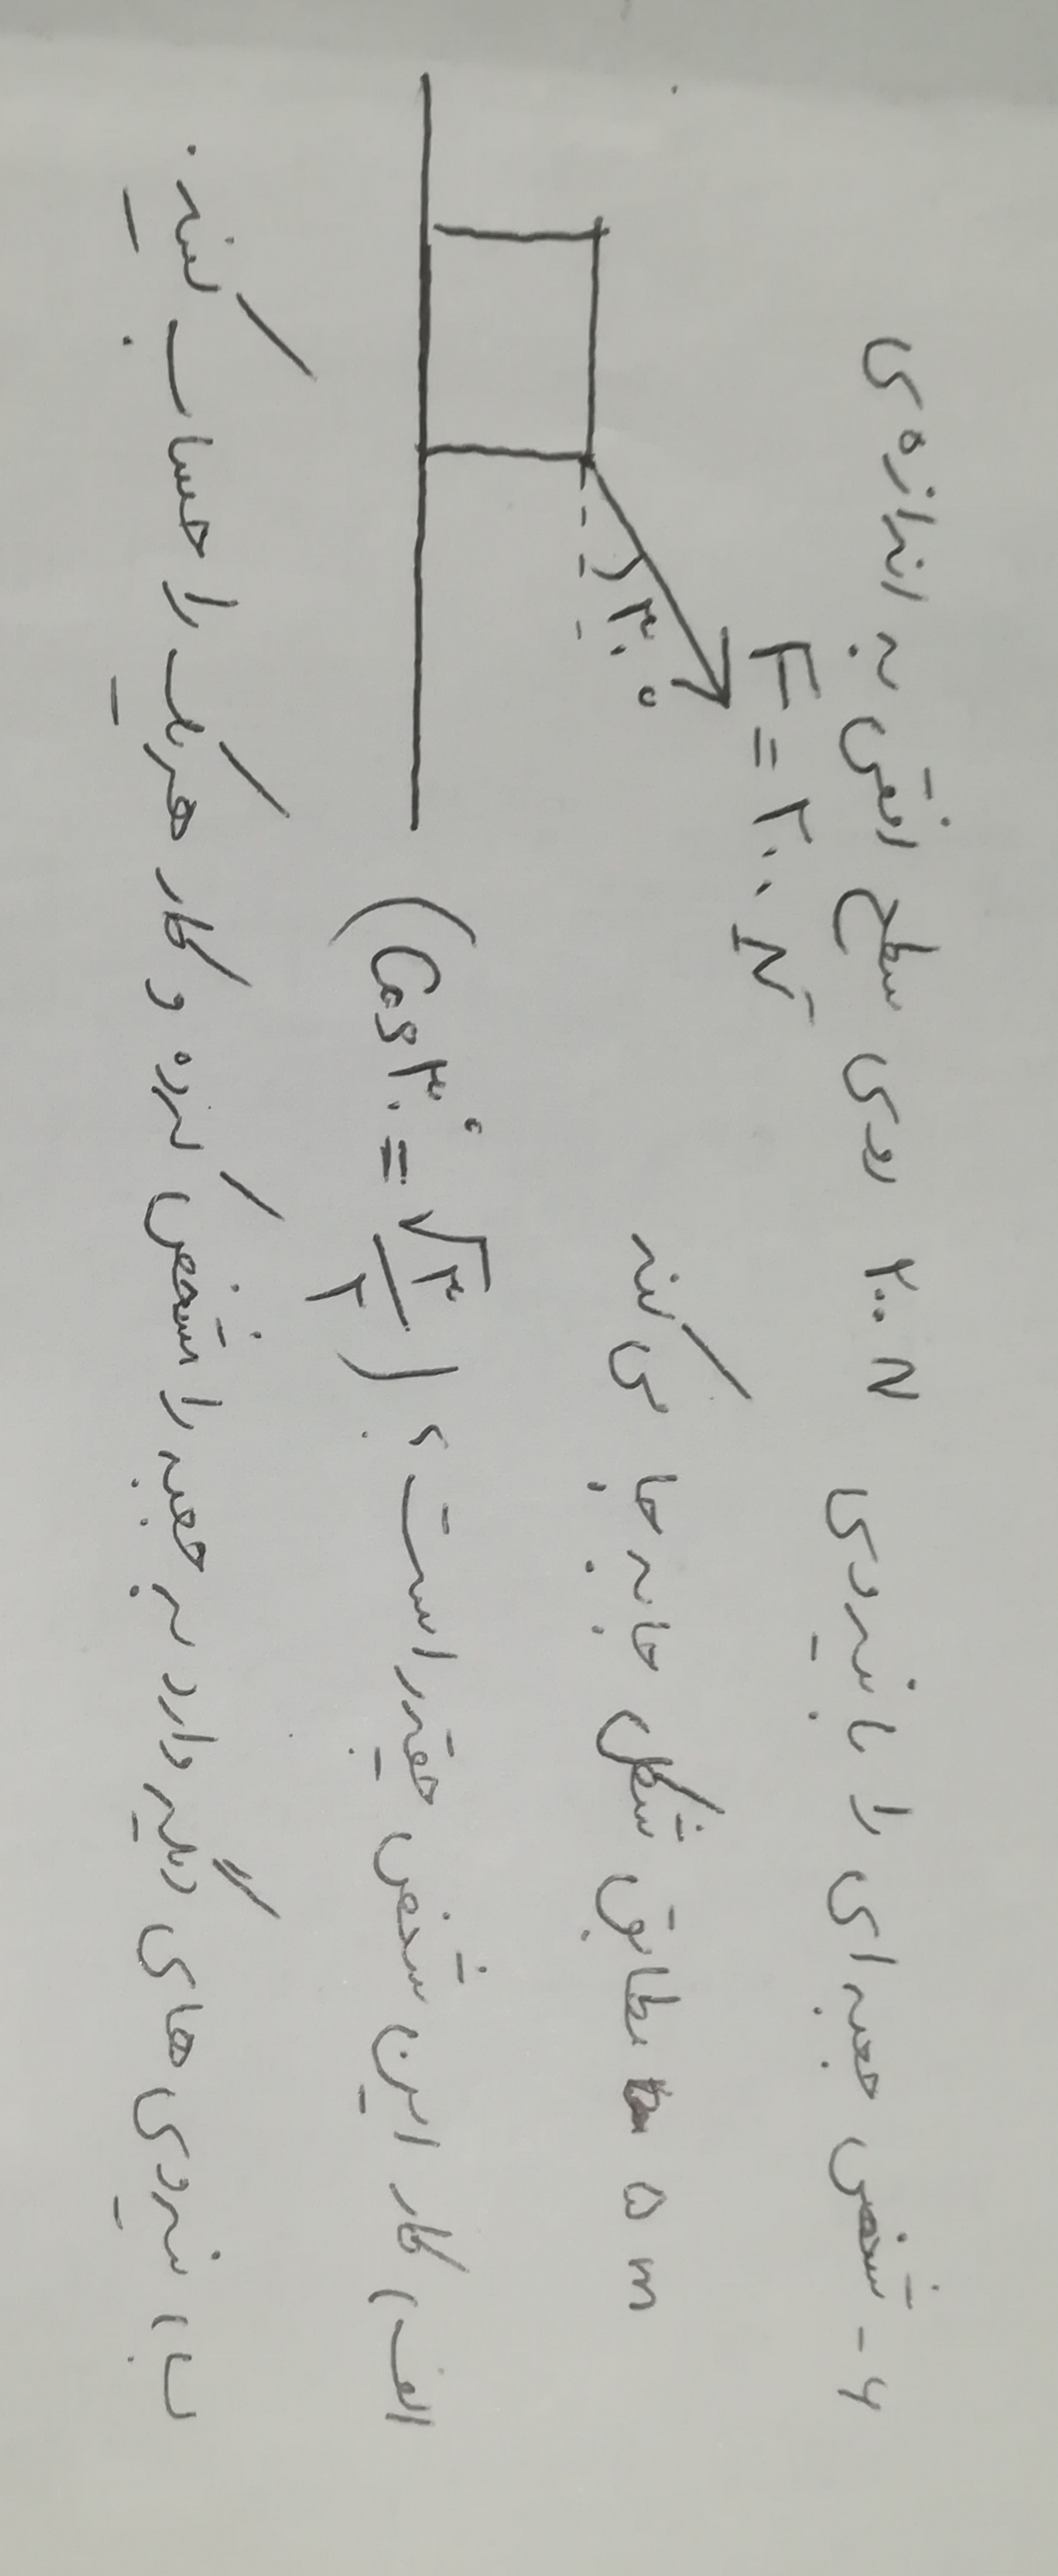 ۶- شخصی جعبه ای را با نیروی ۲۰۰ N روی سطح افقی به اندازه ی
۵ m مطابق شکل جابه جا می کند
F = ۲۰۰ N
۳۰°
الف) کار این شخص چقدر است؟ (Cos ۳۰° = √۳/۲)
ب) نیروی های دیگر وارد به جعبه را مشخص کرده و کار هر یک را حساب کنید.